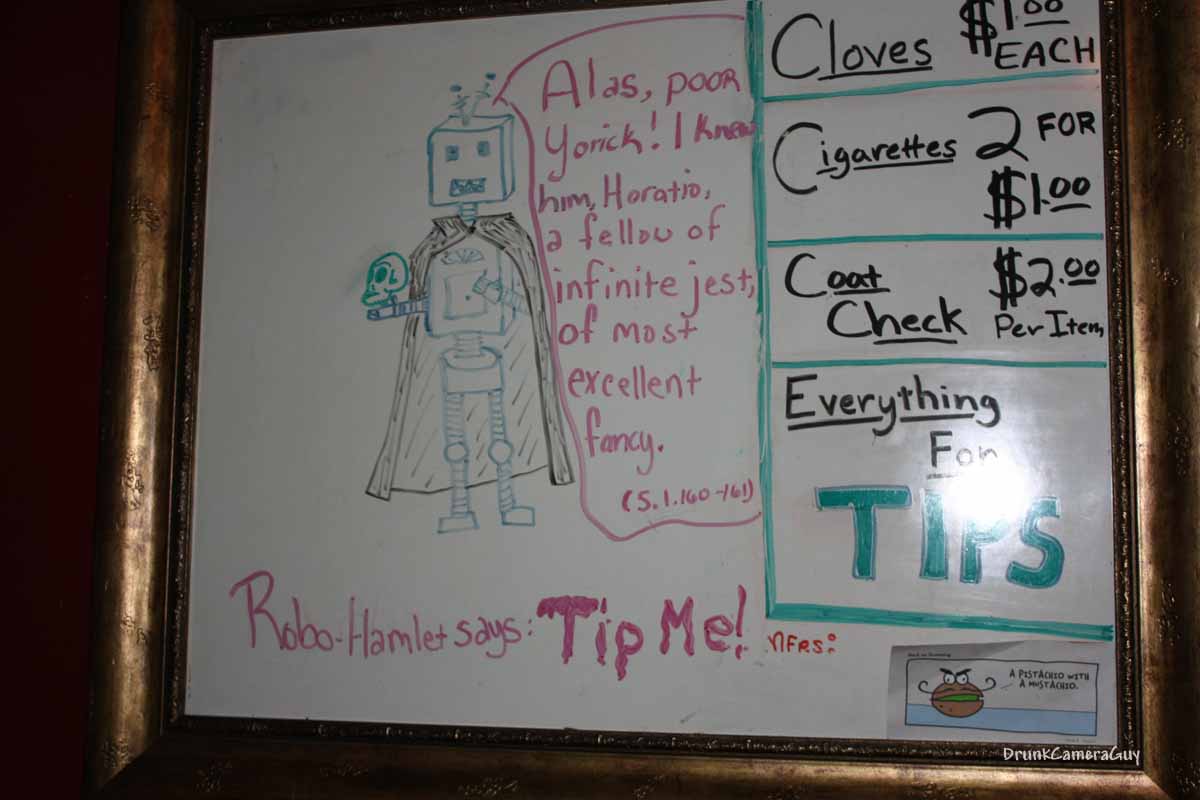 Alas, poor
Yorick! I knew
him, Horatio,
a fellow of
infinite jest,
of most
excellent
fancy.
(5.1.160-161)
Robo-Hamlet says: Tip Me!
Cloves $1.00
EACH
Cigarettes 2 FOR
$1.00
Coat $2.00
Check Per Item
Everything
For
TIPS
NFRs:
A PISTACHIO WITH
A MUSTACHIO.
DrunkCameraGuy